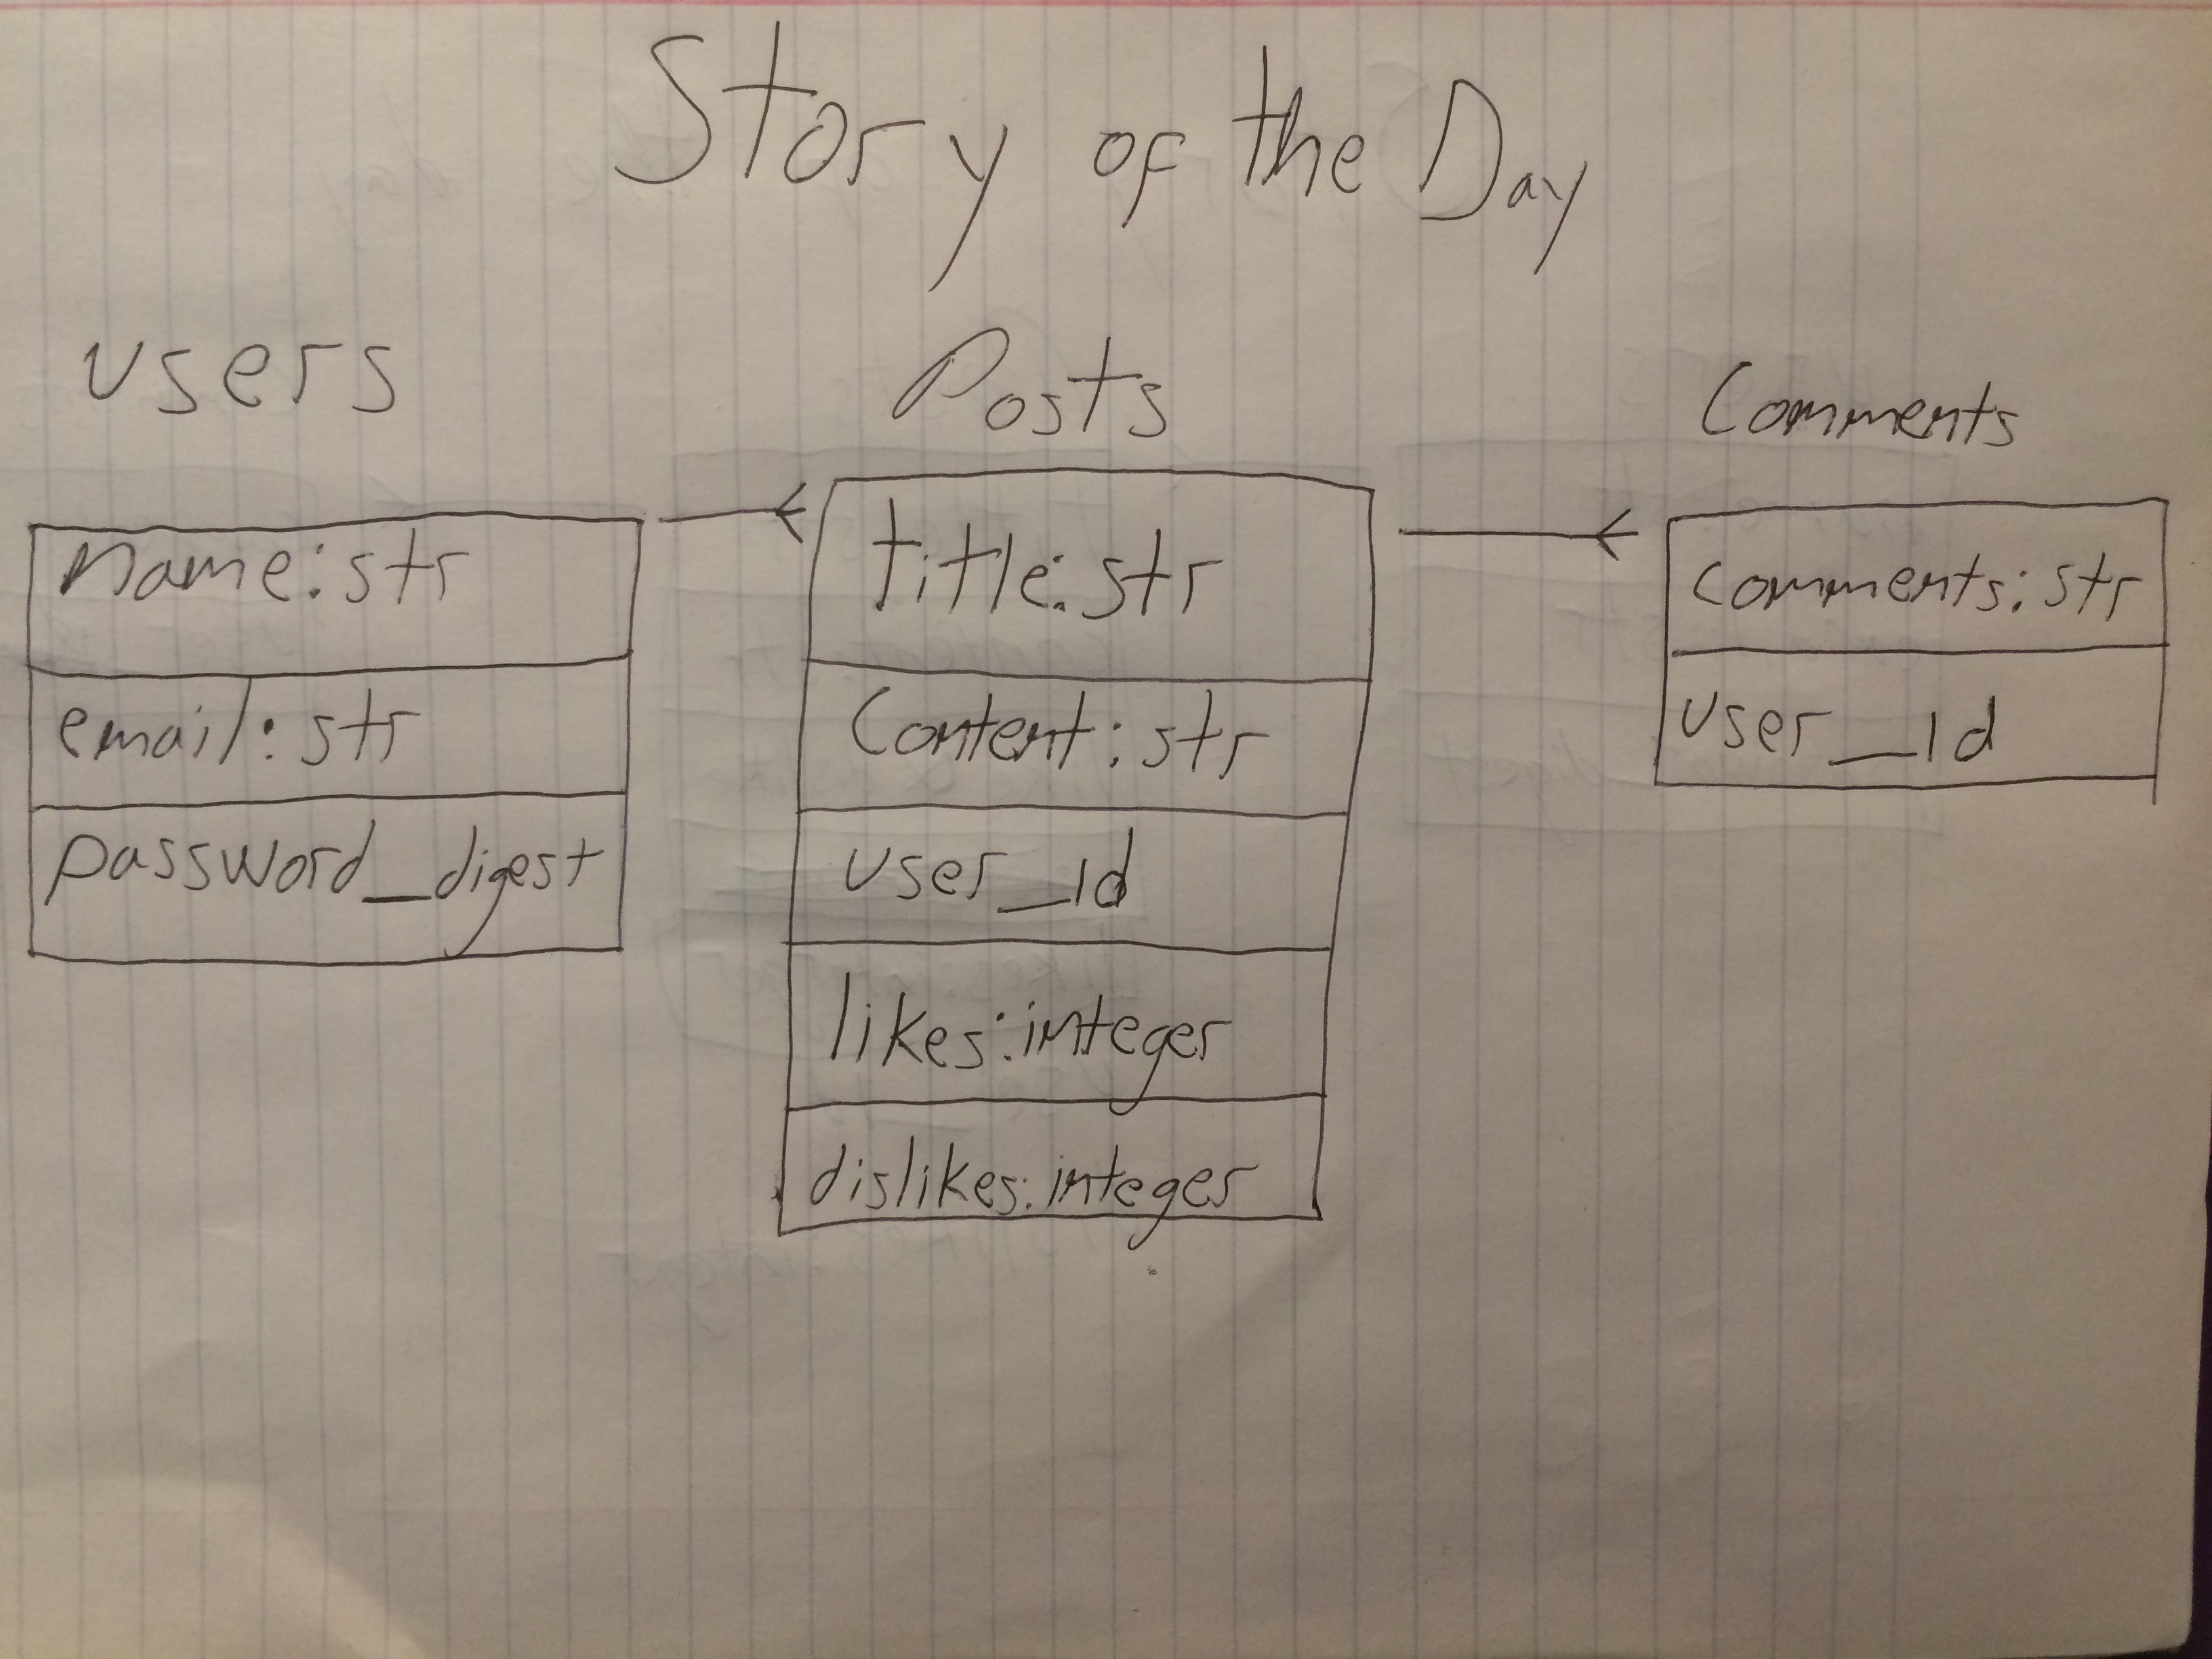 Story of the Day
users
Name:str
email:str
password_digest
Posts
title:str
Content:str
user_id
likes:integer
dislikes:integer
Comments
Comments:str
user_id